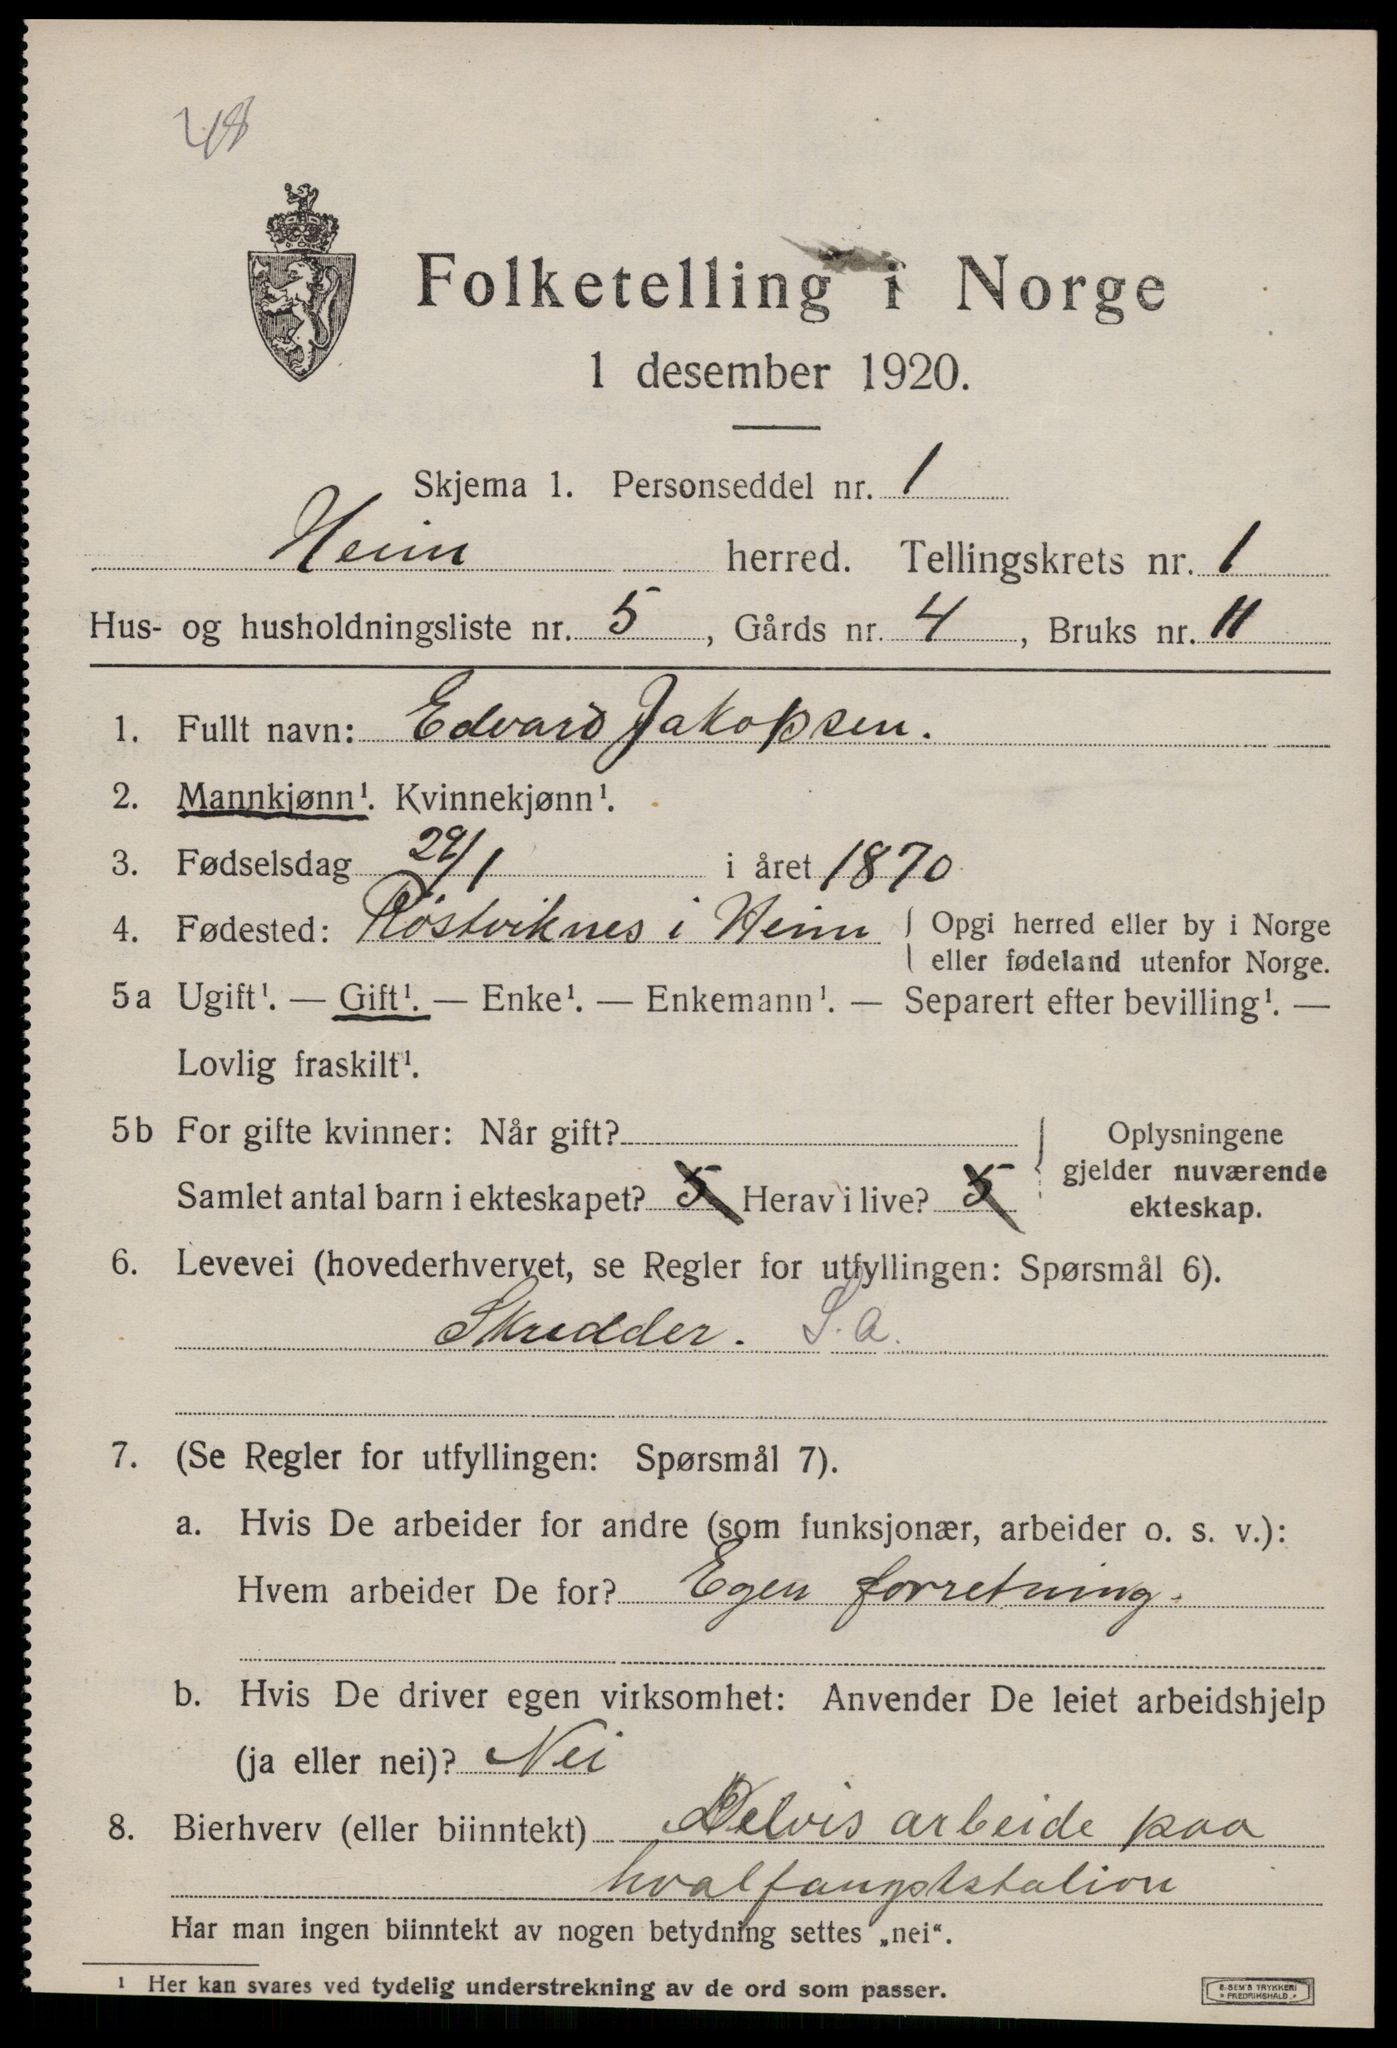 48
Folketelling i Norge
1 desember 1920.
Skjema 1. Personseddel nr. 1
Heim herred. Tellingskrets nr. 1
Hus- og husholdningsliste nr. 5, Gårds nr. 4, Bruks nr. 11
1. Fullt navn: Edvard Jakopsen.
2. Mannkjønn¹. Kvinnekjønn¹.
3. Fødselsdag 29/1 i året 1870
4. Fødested: Röstviknes i Heim { Opgi herred eller by i Norge
eller fødeland utenfor Norge.
5a Ugift¹. — Gift¹. — Enke¹. — Enkemann¹. — Separert efter bevilling¹. —
Lovlig fraskilt¹.
5b For gifte kvinner: Når gift?
Samlet antal barn i ekteskapet? 5 Herav i live? 5
Oplysningene
gjelder nuværende
ekteskap.
6. Levevei (hovederhvervet, se Regler for utfyllingen: Spørsmål 6).
Skredder. S. a.
7. (Se Regler for utfyllingen: Spørsmål 7).
a. Hvis De arbeider for andre (som funksjonær, arbeider o. s. v.):
Hvem arbeider De for? Egen forretning.
b. Hvis De driver egen virksomhet: Anvender De leiet arbeidshjelp
(ja eller nei)? Nei
8. Bierhverv (eller biinntekt) Delvis arbeide paa
hvalfangststation
Har man ingen biinntekt av nogen betydning settes „nei“.
¹ Her kan svares ved tydelig understrekning av de ord som passer.
E. SEM'S TRYKKERI
FREDRIKSHALD